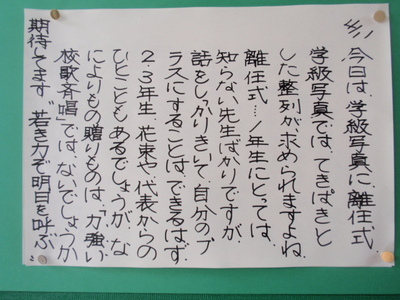 4/11 今日は、学級写真に離任式。
学級写真では、てきぱきと
した整列が求められますよね。
離任式…1年生にとっては、
知らない先生ばかりですが、
話をしっかりきいて、自分のプ
ラスにすることは、できるはず。
2・3年生、花束や代表からの
ひとこともあるでしょうが、な
によりもの贈りものは、「力強い
校歌斉唱」では、ないでしょうか
期待してます "若き力ぞ明日を呼ぶ"
2